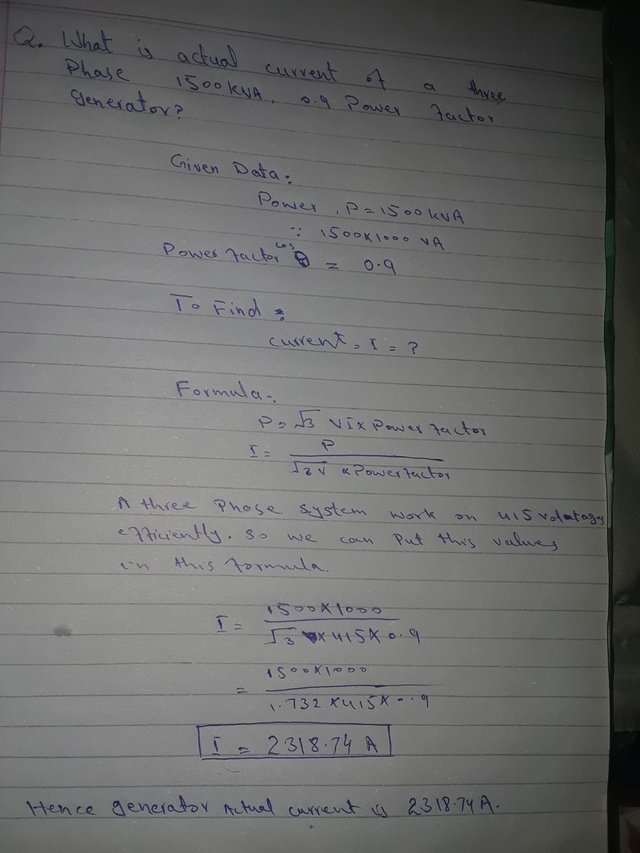 Q. What is actual current of a three
Phase 1500 kVA, 0.9 Power factor
generator?
Given Data:
Power, P = 1500 kVA
∵ 1500x1000 VA
Power factor cos θ = 0.9
To Find :
current, I = ?
Formula:-
P = √3 VI x Power factor
I = P
√3 V x Power factor
A three Phase system work on 415 volatages
efficiently. So we can Put this values
in this formula.
I = 1500 x 1000
√3 x 415 x 0.9
= 1500 x 1000
1.732 x 415 x 0.9
I = 2318.74 A
Hence generator Actual current is 2318.74 A.